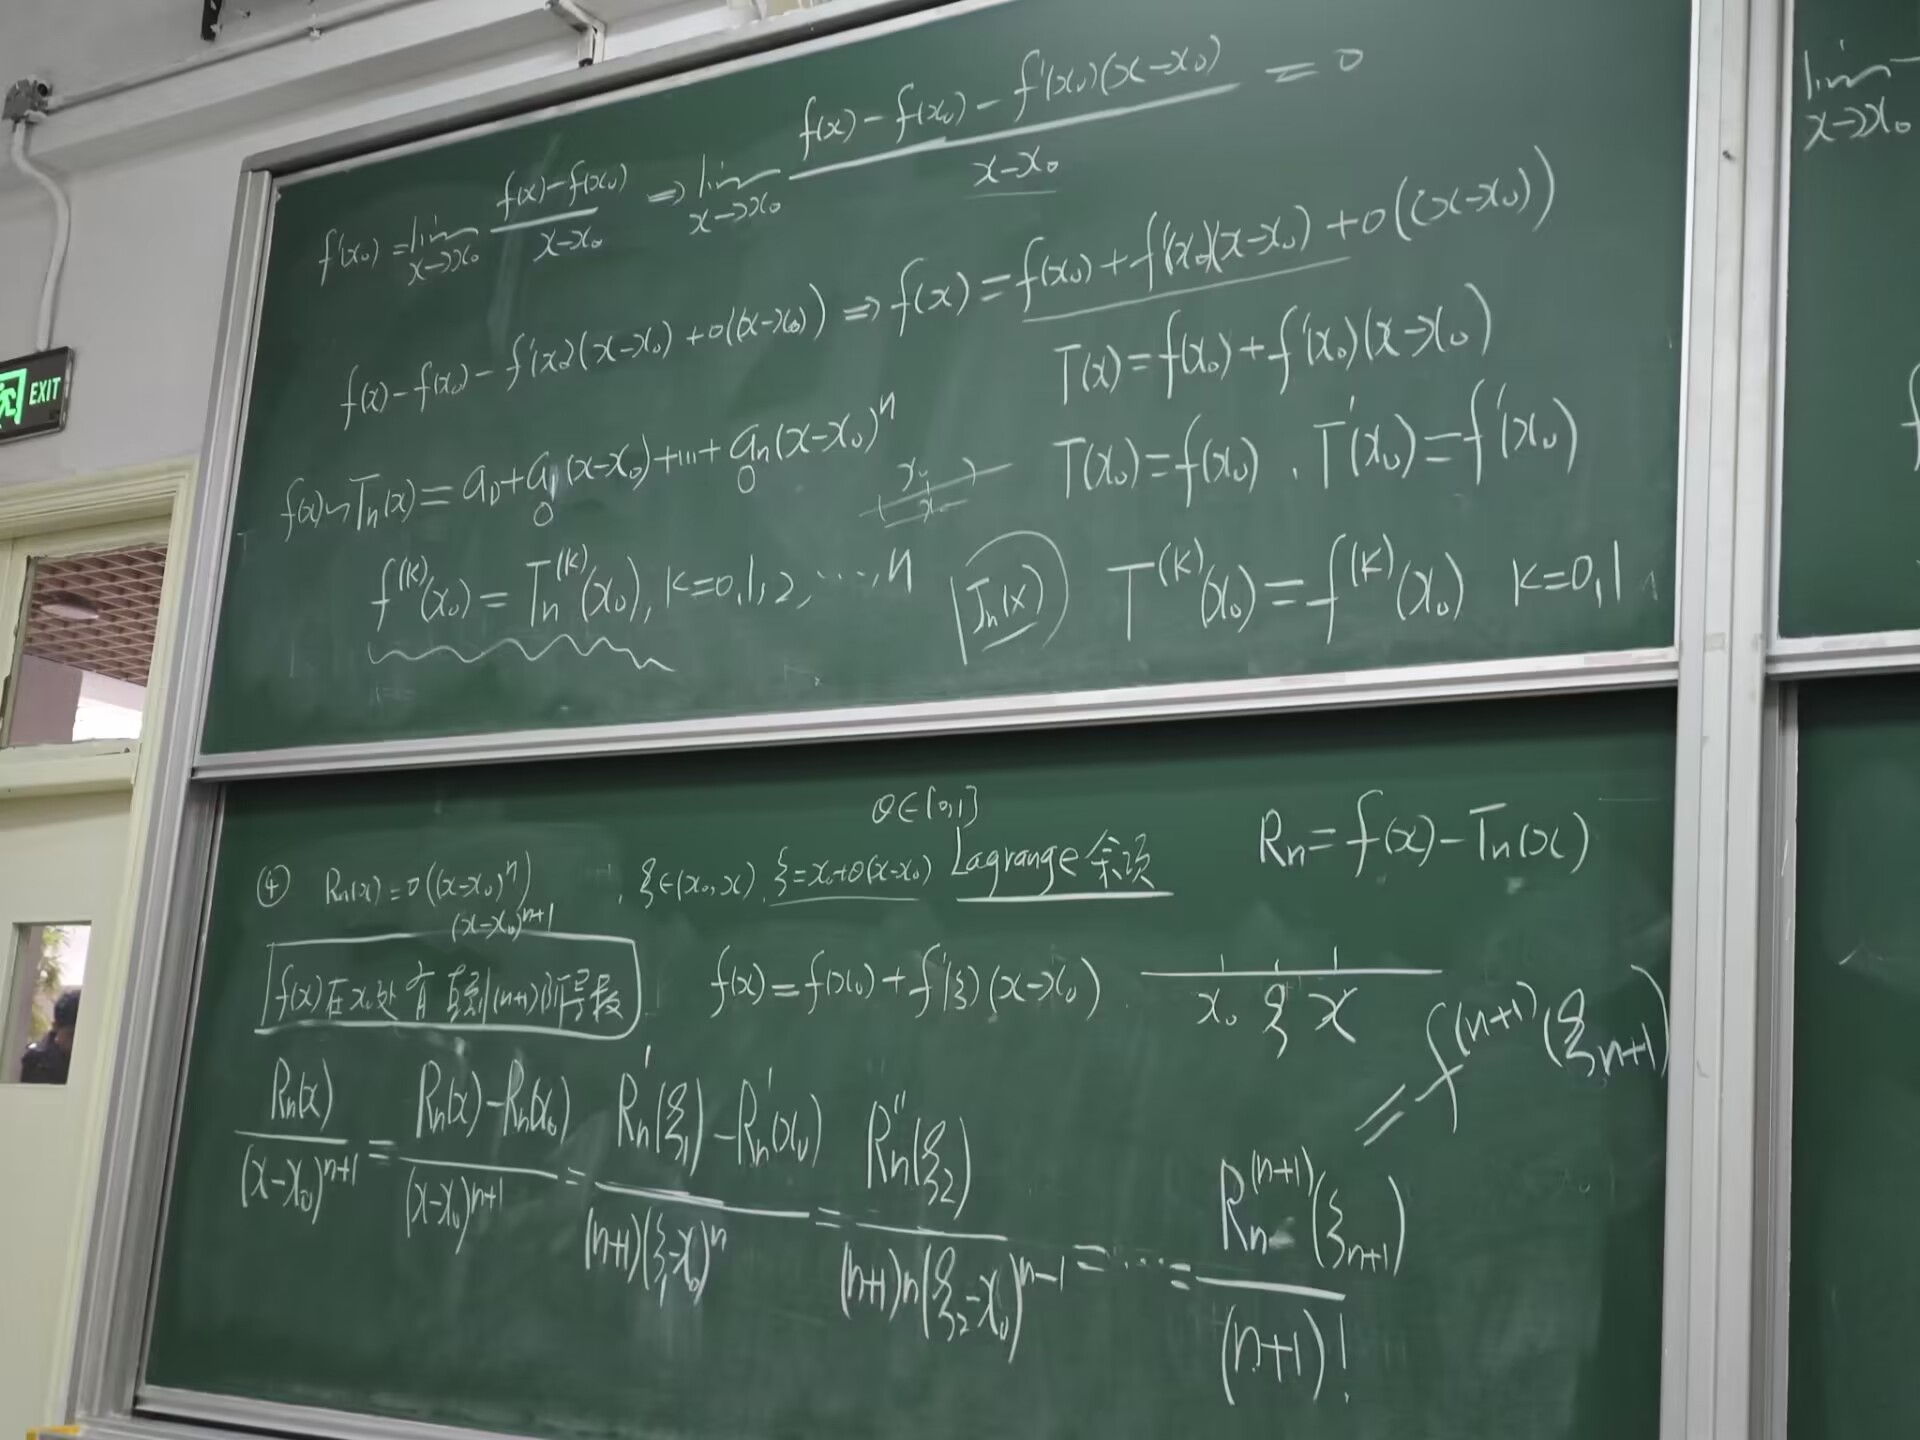 f'(x₀) = lim_{x→x₀} (f(x)-f(x₀))/(x-x₀) ⇒ lim_{x→x₀} (f(x)-f(x₀)-f'(x₀)(x-x₀))/(x-x₀) = 0
f(x)-f(x₀)-f'(x₀)(x-x₀)+o((x-x₀)) ⇒ f(x)=f(x₀)+f'(x₀)(x-x₀)+o((x-x₀))
T(x)=f(x₀)+f'(x₀)(x-x₀)
f(x)~Tₙ(x)=a₀+a₁(x-x₀)+…+aₙ(x-x₀)ⁿ
0 0
T(x₀)=f(x₀), T'(x₀)=f'(x₀)
f^{(k)}(x₀)=Tₙ^{(k)}(x₀), k=0,1,2,…,n
Tₙ(x)
T^{(k)}(x₀)=f^{(k)}(x₀) k=0,1
θ∈[0,1]
④ Rₙ(x)=o((x-x₀)ⁿ) , ξ∈(x₀,x), ξ=x₀+θ(x-x₀) Lagrange余项
Rₙ=f(x)-Tₙ(x)
(x-x₀)^{n+1}
f(x)在x₀处有直到(n+1)阶导数
f(x)=f(x₀)+f'(ξ)(x-x₀)
x₀ ξ x
Rₙ(x)/(x-x₀)^{n+1} = (Rₙ(x)-Rₙ(x₀))/(x-x₀)^{n+1} = (Rₙ'(ξ₁)-Rₙ'(x₀))/((n+1)(ξ₁-x₀)ⁿ) = Rₙ''(ξ₂)/((n+1)n(ξ₂-x₀)^{n-1}) = … = Rₙ^{(n+1)}(ξ_{n+1})/(n+1)!
= f^{(n+1)}(ξ_{n+1})
lim_{x→x₀}
f
EXIT